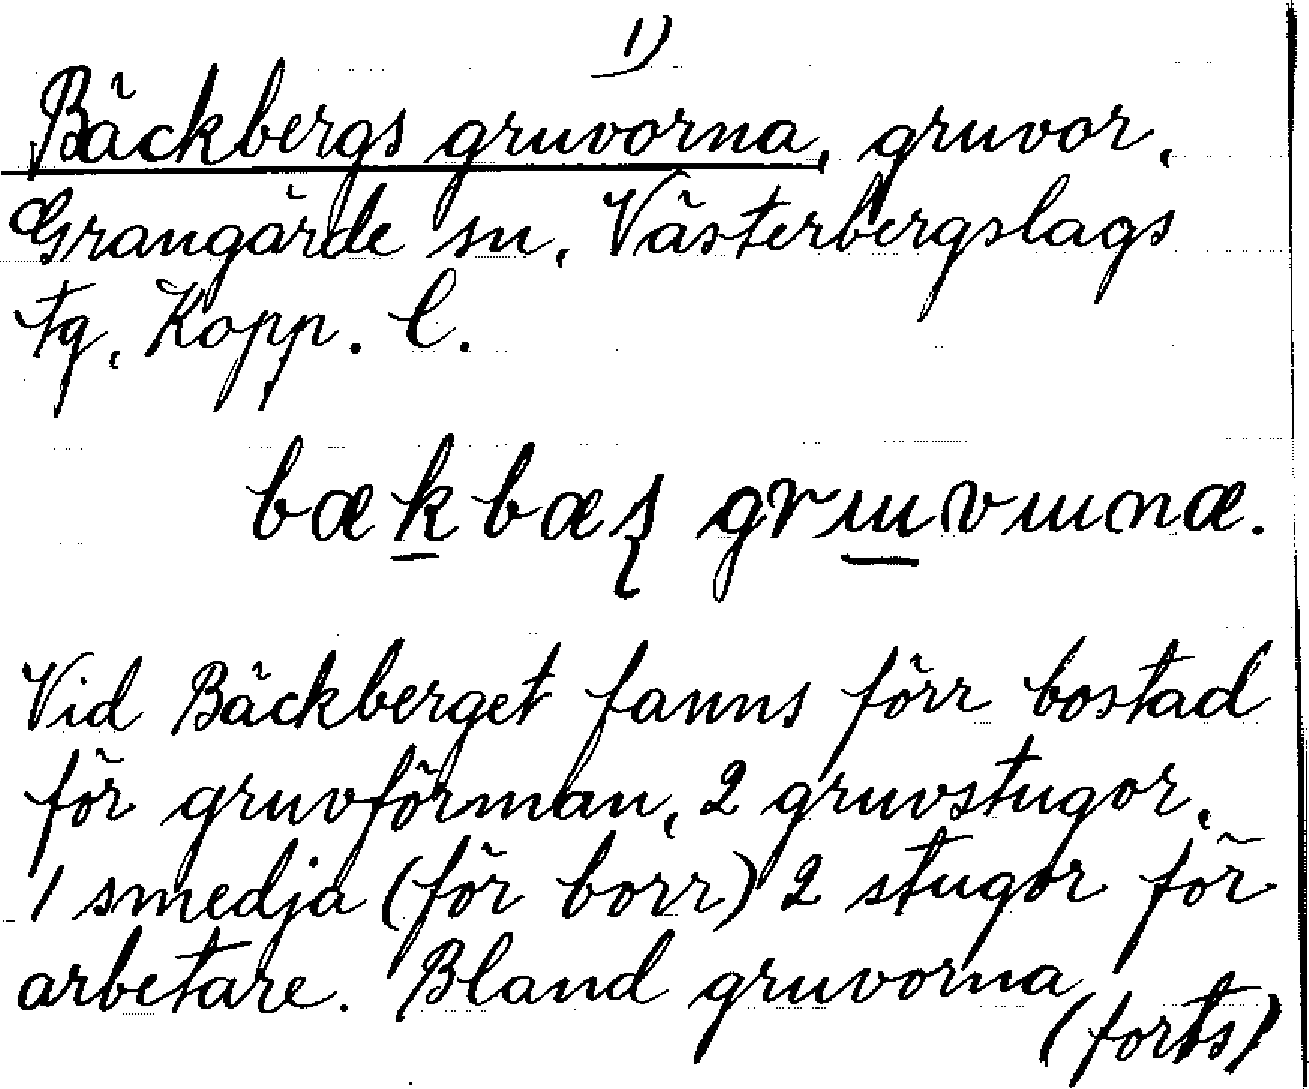 1)
Bäckbergs gruvorna, gruvor,
Grangärde sn, Västerbergslags
tg, Kopp. l.
Vid Bäckberget fanns förr bostad
för gruvförman, 2 gruvstugor,
1 smedja (för borr) 2 stugor för
arbetare. Bland gruvorna
(forts)